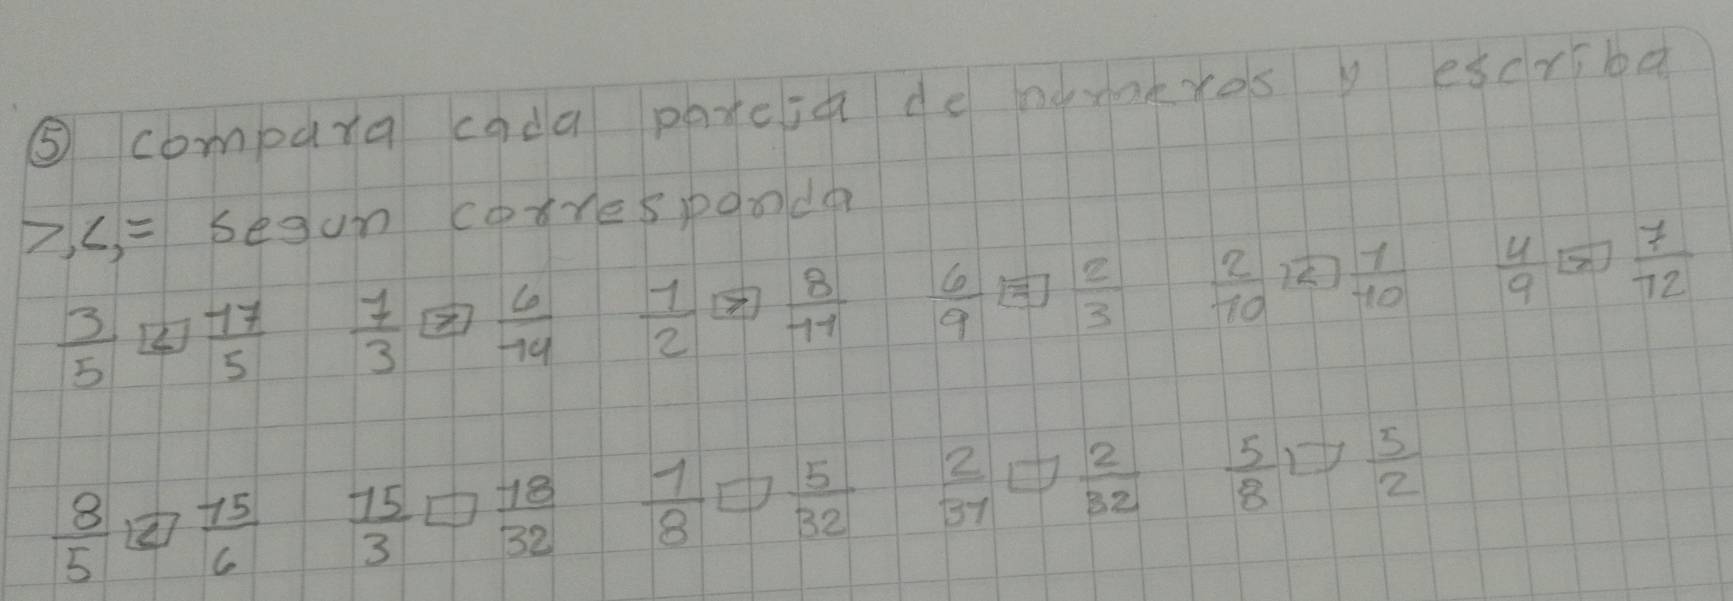 ⑤ compara cada pareja de numeros y escriba
>,<,= segun corresponda
3/5 < 17/5 7/3 > 6/14 1/2 > 8/11 6/9 = 2/3 2/10 < 1/10 4/9 > 7/12
8/5 < 15/6 15/3 □ 18/32 1/8 □ 5/32 2/31 □ 2/32 5/8 □ 5/2